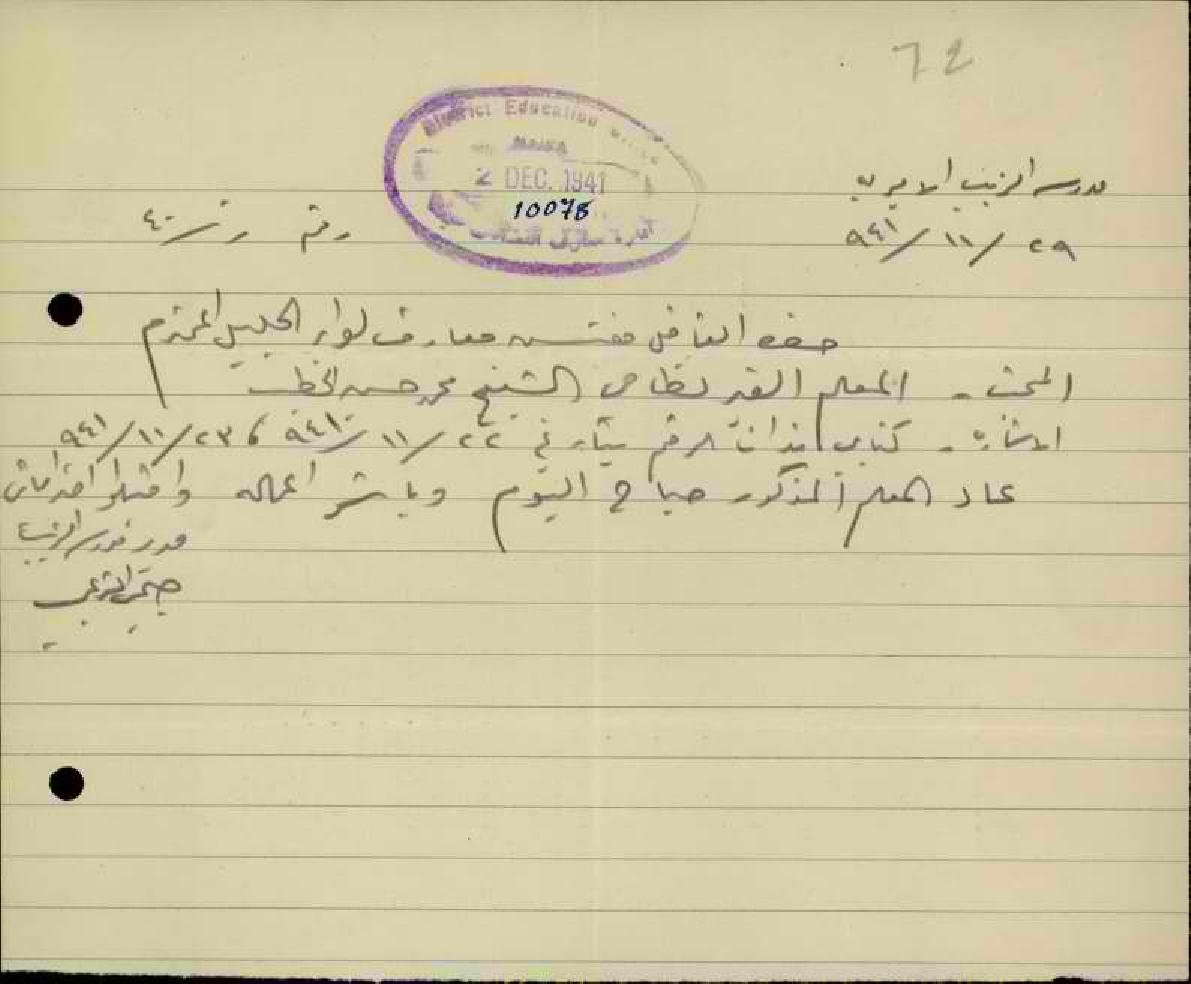 72
District Education Office
HAIFA
2 DEC. 1941
10078
مدرسة الزيب الاميرية
رقم ز/٤٠
٢٩/١١/٩٤١
حضرة الفاضل مفتش معارف لواء الجليل المحترم
البحث - المعلم الغير نظامي الشيخ محمد حسن الخطيب
الاشارة - كتابي بذات الرقم بتاريخ ٢٢/١١/٩٤١ و ٢٣/١١/٩٤١
عاد المعلم المذكور صباح اليوم وباشر اعماله واقبلوا احترامي
مدير مدرسة الزيب